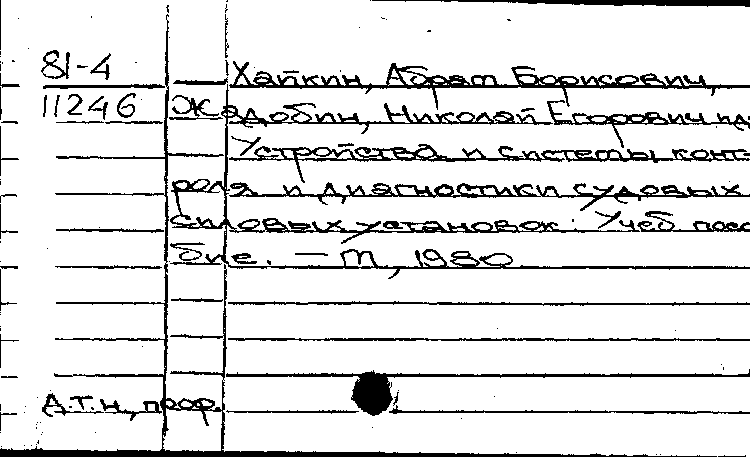 81-4 Хайкин, Абрам Борисович,
11246 Жадобин, Николай Егорович и др
Устройства и системы конт-
роля и диагностики судовых
силовых установок: Учеб посо
бие. — М, 1980
д.т.н., проф.